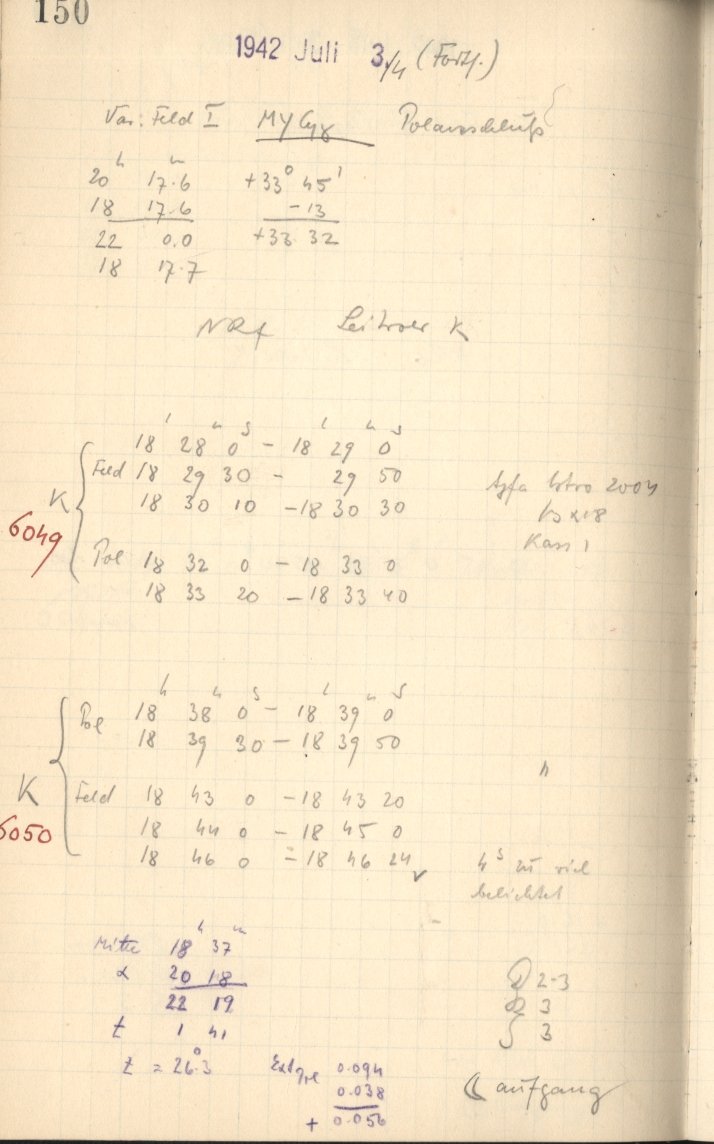 150
1942 Juli 3./4 (Forts.)
Var: Feld I MY Cyg Polanschluß
20 h 17.6 m +33° 45'
18 17.6 - 13
22 0.0 +33 32
18 17.7
Leitrohr K
18 h 28 m 0 s - 18 h 29 m 0 s
Feld 18 29 30 - 29 50
K 18 30 10 - 18 30 30
6049
Pol 18 32 0 - 18 33 0
18 33 20 - 18 33 40
Agfa Astro
Kass 1
Pol 18 h 38 m 0 s - 18 h 39 m 0 s
18 39 30 - 18 39 50
"
K Feld 18 43 0 - 18 43 20
6050
18 44 0 - 18 45 0
18 46 0 - 18 46 24
4 s zu viel
belichtet
Mitte 18 h 37 m
α 20 18
22 19
t 1 41
z = 26°.3
Ext Pol 0.094
0.038
+ 0.056
2-3
3
3
☾ aufgang